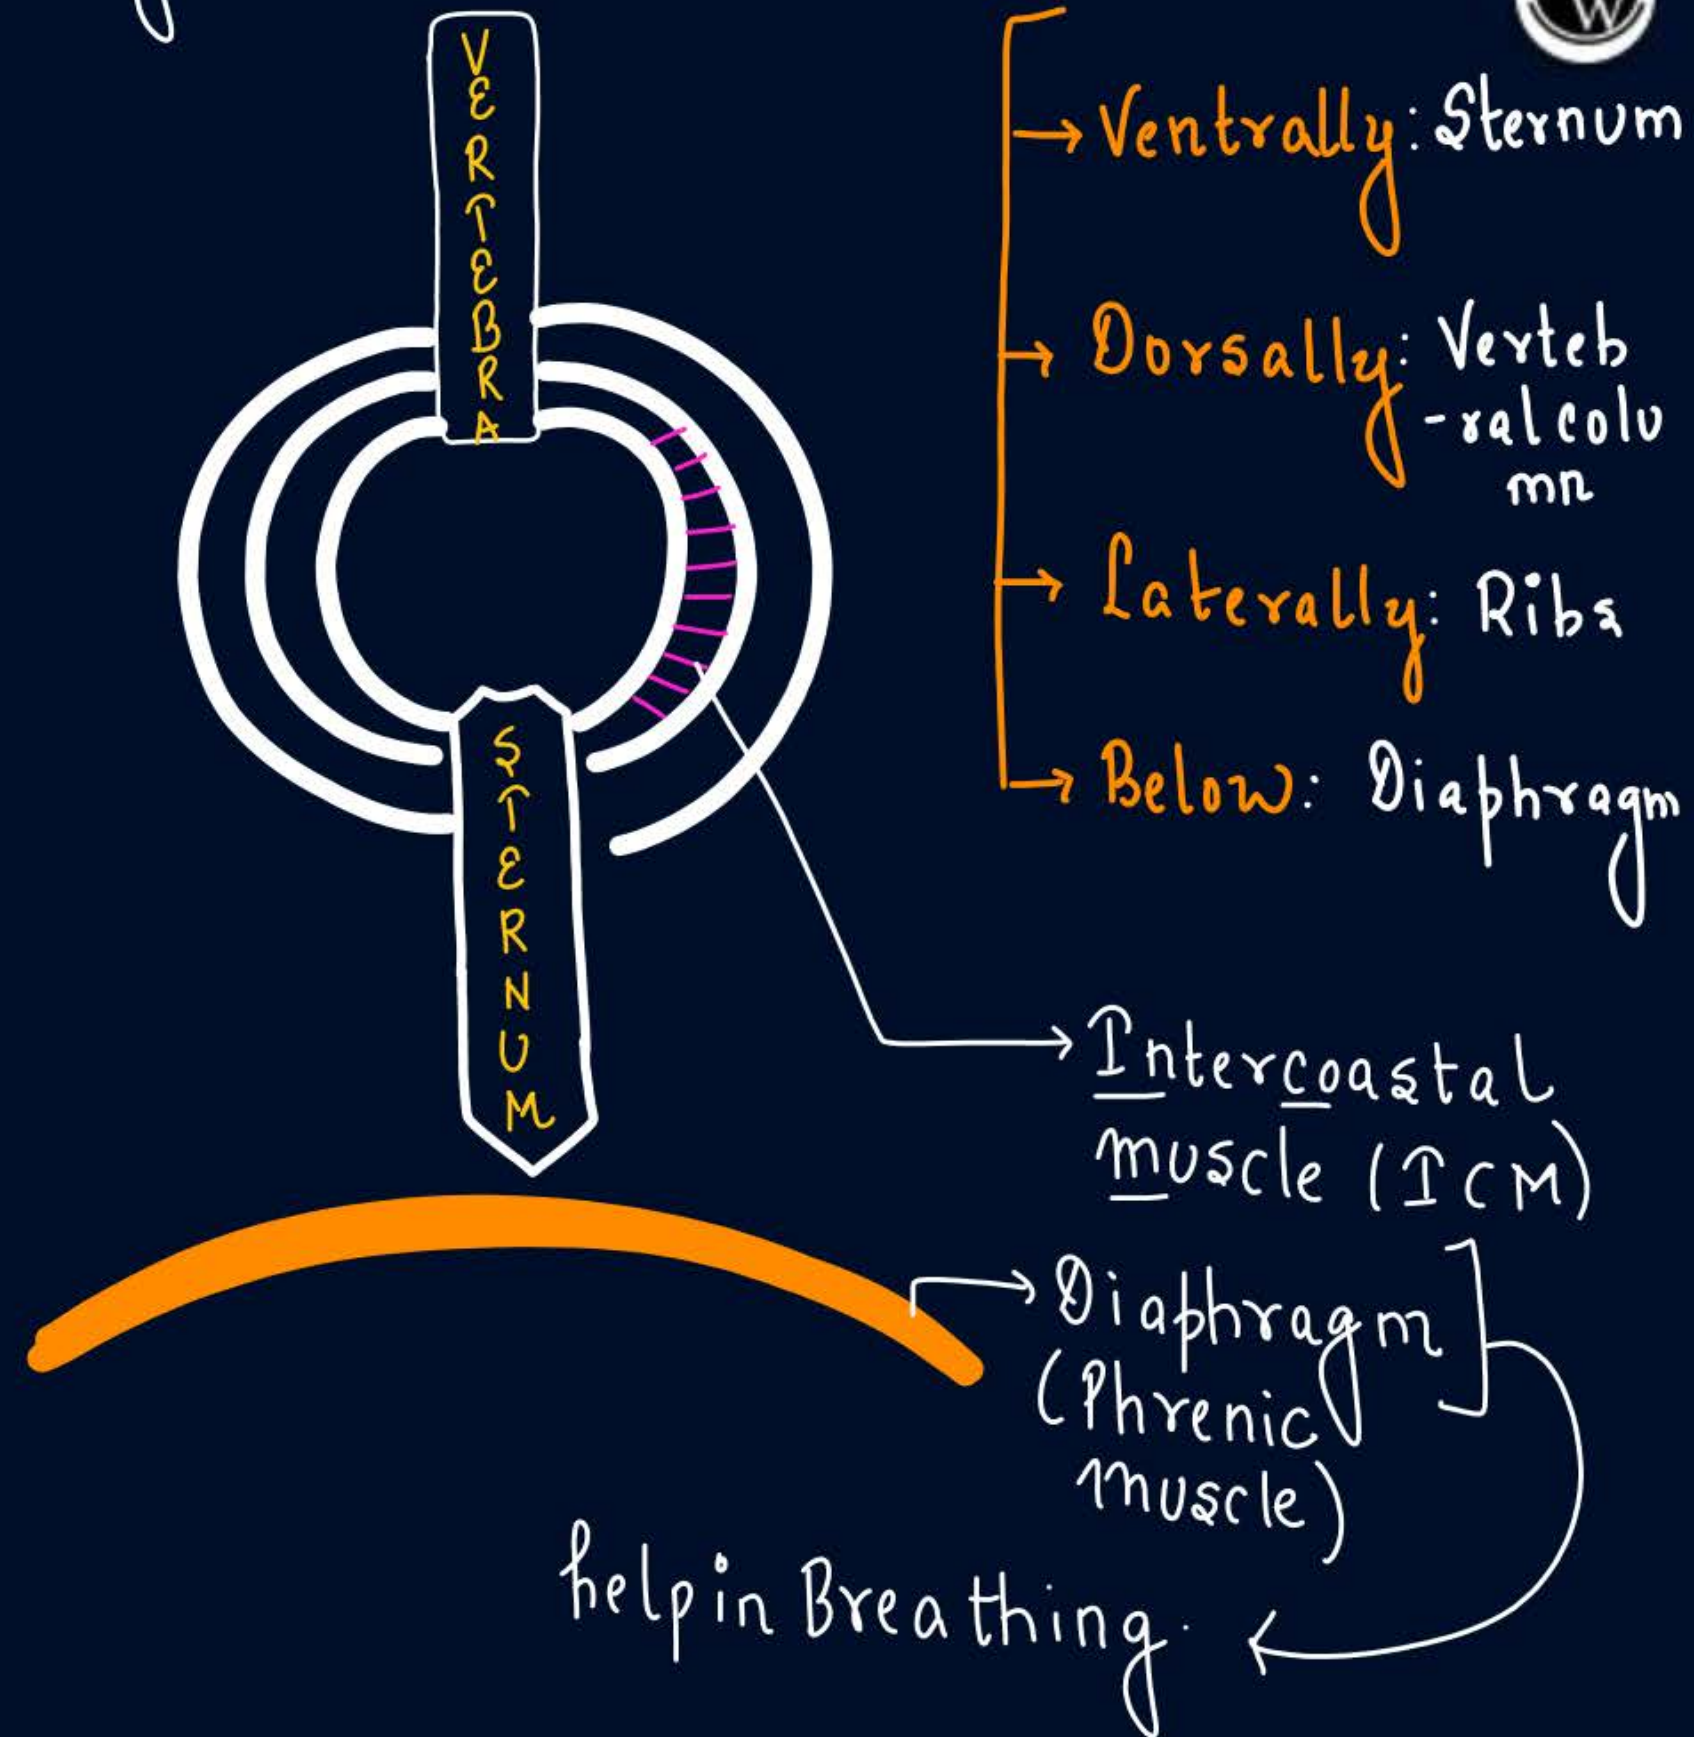 VERTEBRA
STERNUM
W
→ Ventrally: Sternum
→ Dorsally: Verteb
-ral colu
mn
→ Laterally: Ribs
→ Below: Diaphragm
→ Intercoastal
muscle (ICM)
→ Diaphragm
(Phrenic
muscle)
help in Breathing.